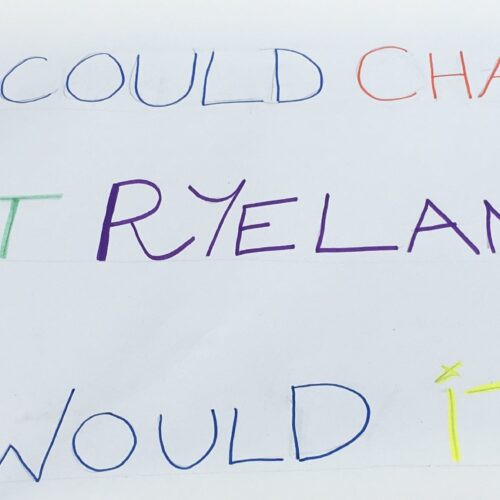 COULD CHA
T RYELAN
WOULD IT